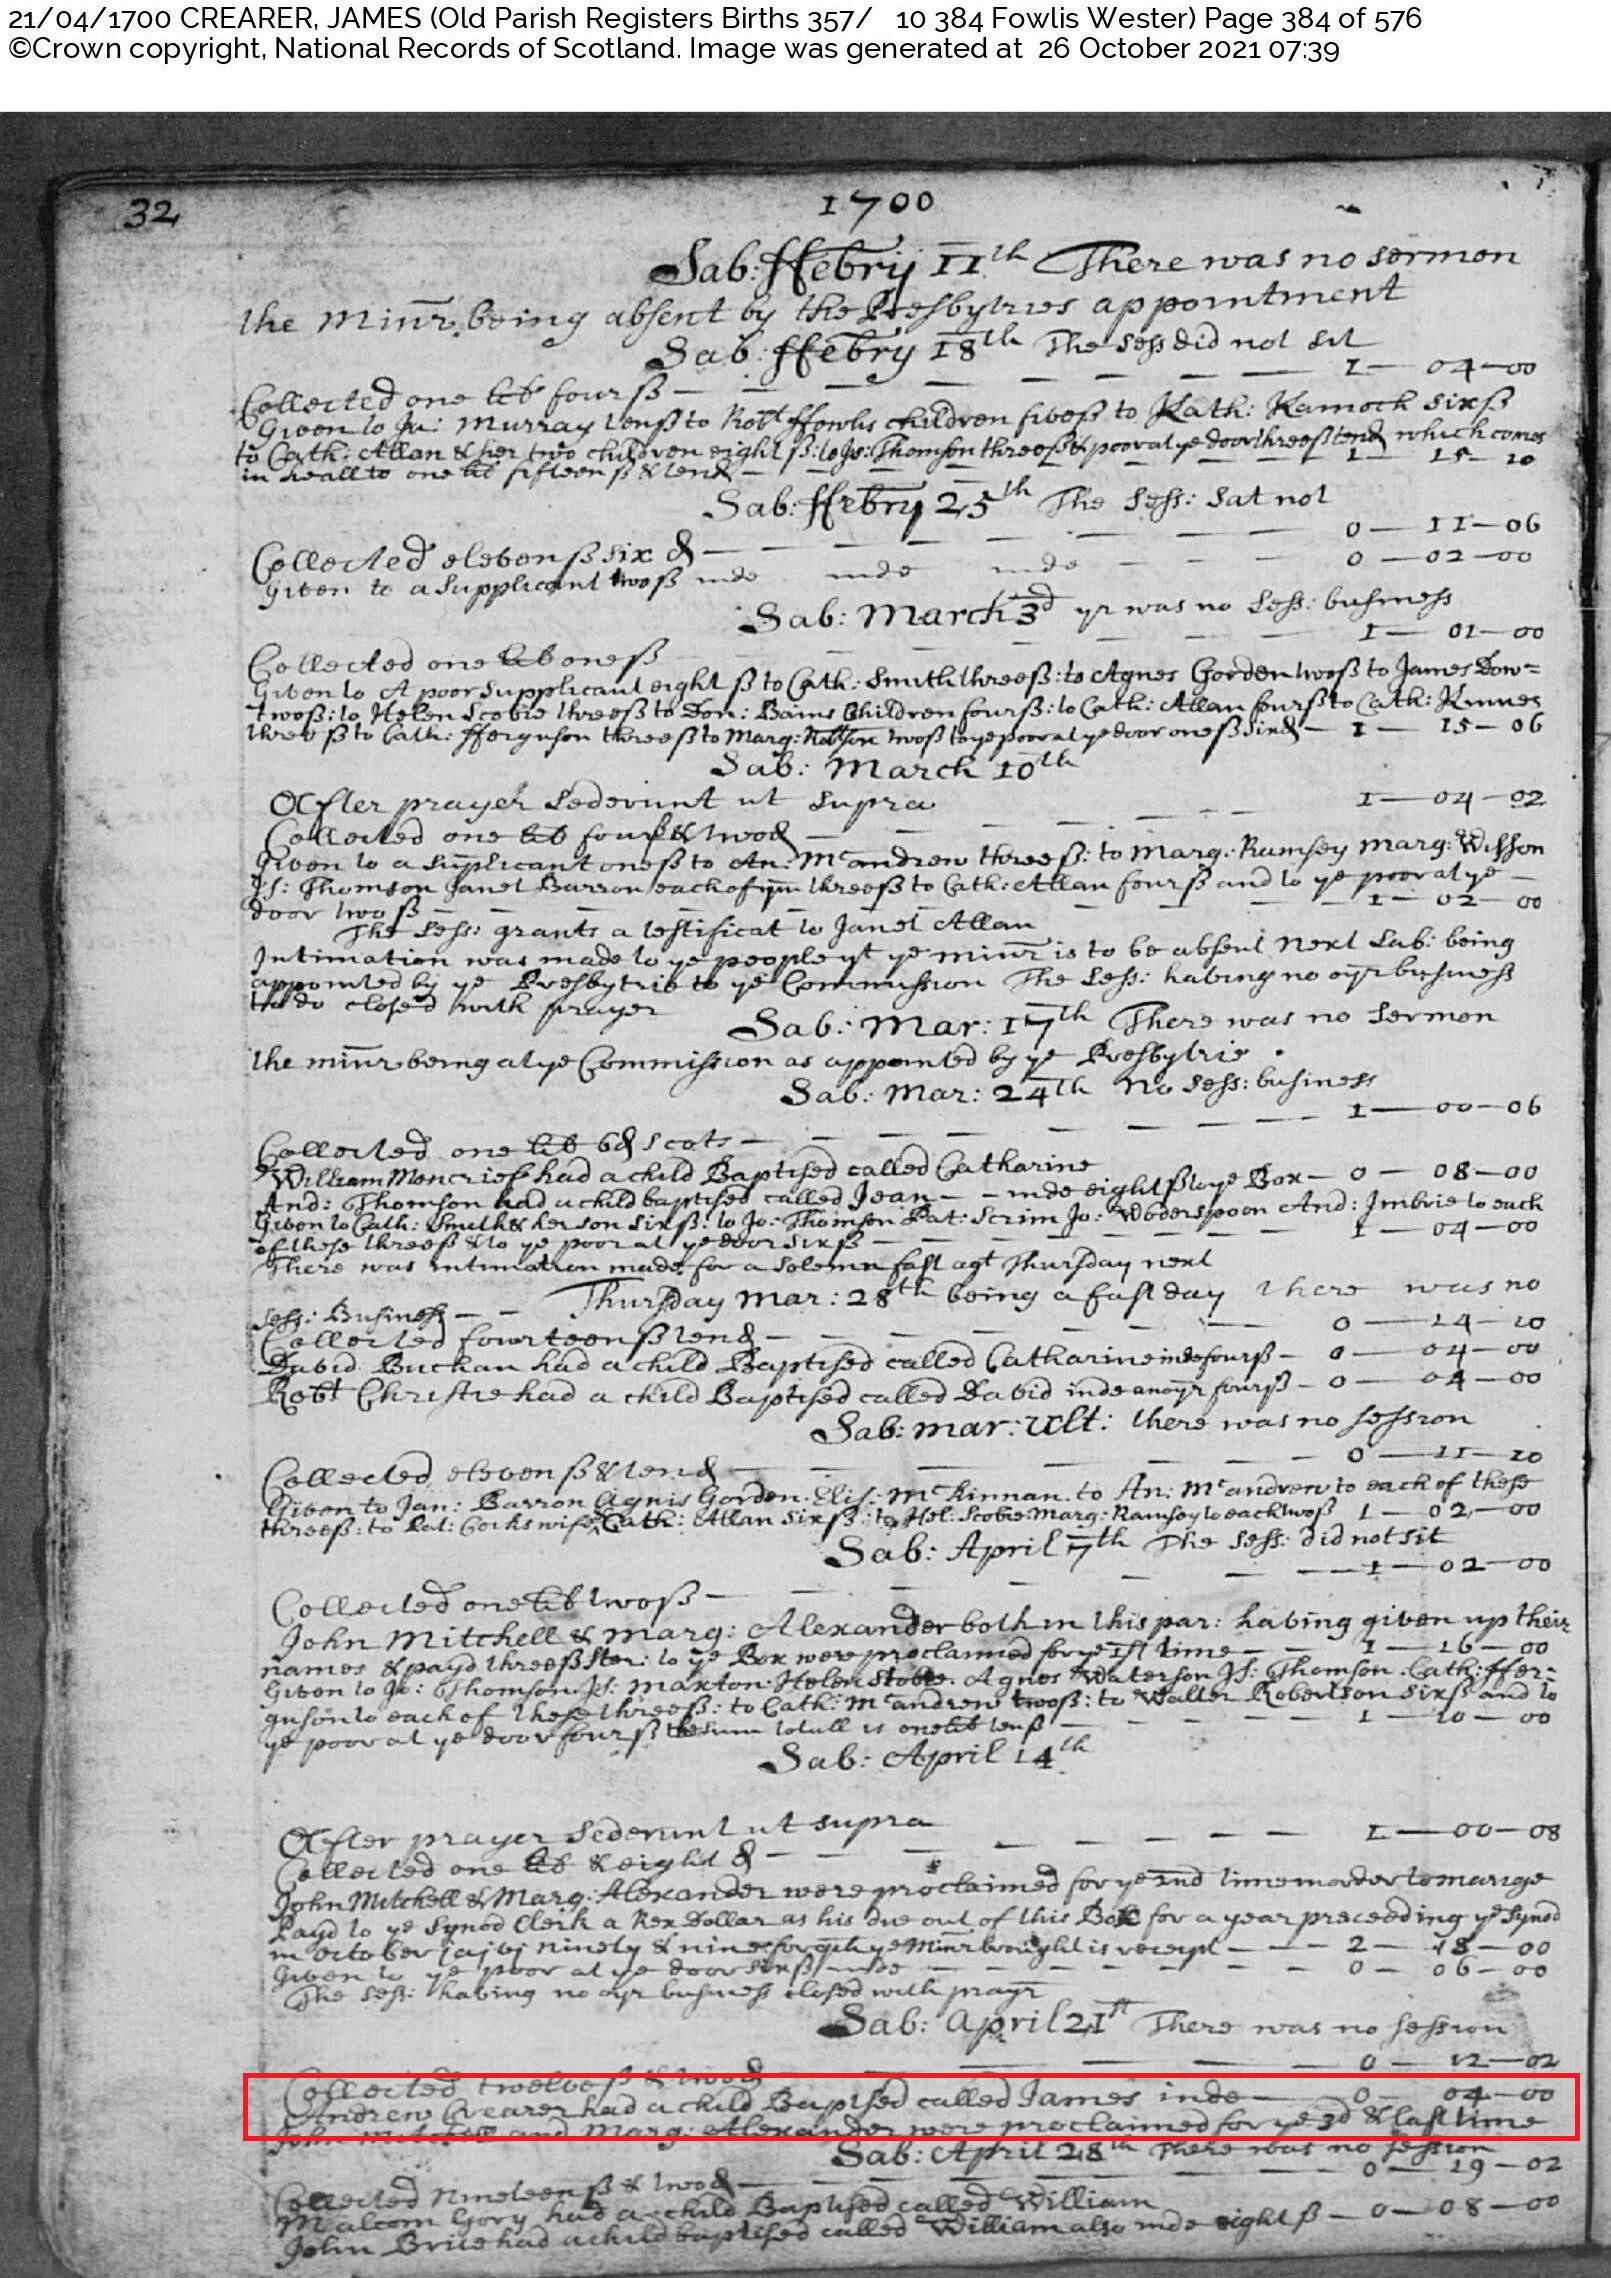 21/04/1700 CREARER, JAMES (Old Parish Registers Births 357/ 10 384 Fowlis Wester) Page 384 of 576
©Crown copyright, National Records of Scotland. Image was generated at 26 October 2021 07:39
32
1700
Sab: ffebrij 11th There was no sermon
the Minr. being absent by the Presbytries appointment
Sab: ffebry 18th The Sess did not sit
Collected one lib four ß — 1 — 04 — 00
Given to Ja: Murray tenß to Robt ffowlis children fiveß to Kath: Kamock sixß
to Cath: Allan & her two children eight ß: to Jo: Thomson threeß & poor at ye door threeß tend which comes
in heall to one lib fifteen ß & tend — 1 — 15 — 10
Sab: ffebry 25th The Sess: Sat not
Collected eleven ß six d — 0 — 11 — 06
Given to a Supplicant two ß inde inde inde — 0 — 02 — 00
Sab: March 3d yr was no Sess: business
Collected one lib oneß — 1 — 01 — 00
Given to A poor Supplicant eight ß to Cath: Smith threeß: to Agnes Gorden twoß to James Dow=
twoß: to Helen Scobie threeß to Don: Bains Children fourß: to Cath: Allan fourß to Cath: Kinnes
three ß to Cath: fferguson threeß to Marg: twoß to ye poor at ye door oneß six d — 1 — 15 — 06
Sab: March 10th
After prayer Sederunt ut Supra
Collected one lib fourß & two d — 1 — 04 — 02
Given to a Supplicant oneß to An: Mcandrew threeß: to Marg: Ramsey Marg: Wisson
Js: Thomson Janet Barron each of ym threeß to Cath: Allan four ß and to ye poor at ye —
door two ß — 1 — 02 — 00
The Sess: grants a testificat to Janet Allan
Intimation was made to ye people yt ye minr is to be absent next Sab: being
appointed by ye Presbytrie to ye Commission The Sess: having no oyr business
to do closed with prayer
Sab: Mar: 17th There was no Sermon
the minr being at ye Commission as appointed by ye Presbytrie .
Sab: Mar: 24th No Sess: business
Collected one lib 6d Scots — 1 — 00 — 06
William Moncrief had a child Baptised called Catharine
And: Thomson had a child baptised called Jean — — inde eight ß to ye Box — 0 — 08 — 00
Given to Cath: Smith & her son Six ß: to Jo: Thomson Pat: Scrim Jo: Woderspoon And: Imbrie to each
of these threeß & to ye poor at ye door six ß — 1 — 04 — 00
There was intimation made for a Solemn fast agt Thursday next
Thursday Mar: 28th being a fast day there was no
Sess: Business — —
Collected fourteen ß tend — 0 — 14 — 10
David Buchan had a child Baptised called Catharine inde fourß — 0 — 04 — 00
Robt Christie had a child Baptised called David inde anoyr fourß — 0 — 04 — 00
Sab: mar: ult: there was no session
Collected eleven ß & tend — 0 — 11 — 10
Given to Jan: Barron Agnis Gorden. Elis: McKinnan. to An: Mcandrew to each of these
threeß: to Pat: Gorks wife Cath: Allan Sixß: to Hel: Scobie Marg: Ramsey to each twoß 1 — 02 — 00
Sab: April 7th The Sess: did not sit
Collected one lib two ß — 1 — 02 — 00
John Mitchell & Marg: Alexander both in this par: having given up their
names & payd threeß ster: to ye Box were proclaimed for ye 1st time — 1 — 16 — 00
Given to Jo: Thomson. Js: Maxton. Helen Stobie. Agnes Waterson Js: Thomson. Cath: ffer=
guson to each of these threeß: to Cath: Mcandrew twoß: to Walter Robertson Sixß and to
ye poor at ye door four ß the sum totall is one lib tenß — 1 — 10 — 00
Sab: April 14th
After prayer Sederunt ut supra
Collected one lib & eight d — 1 — 00 — 08
John Mitchell & Marg: Alexander were proclaimed for ye 2nd time in order to mariage
Payd to ye Synod Clerk a Rex Dollar as his due out of this Box for a year preceeding ye Synod
in october jajvj ninety & nine for qch ye Minr brought is receept — 2 — 18 — 00
Given to ye poor at ye door sixß inde — 0 — 06 — 00
The Sess: having no oyr business closed with prayr
Sab: April 21st There was no session
Collected twelve ß & two d — 0 — 12 — 02
Andrew Crearer had a child Baptised called James inde — 0 — 04 — 00
John Mitchell and Marg: Alexander were proclaimed for ye 3d & last time
Sab: April 28th There was no session
Collected Nineteen ß & two d — 0 — 19 — 02
Malcom Gory had a child Baptised called William
John Brice had a child baptised called William also inde eight ß — 0 — 08 — 00